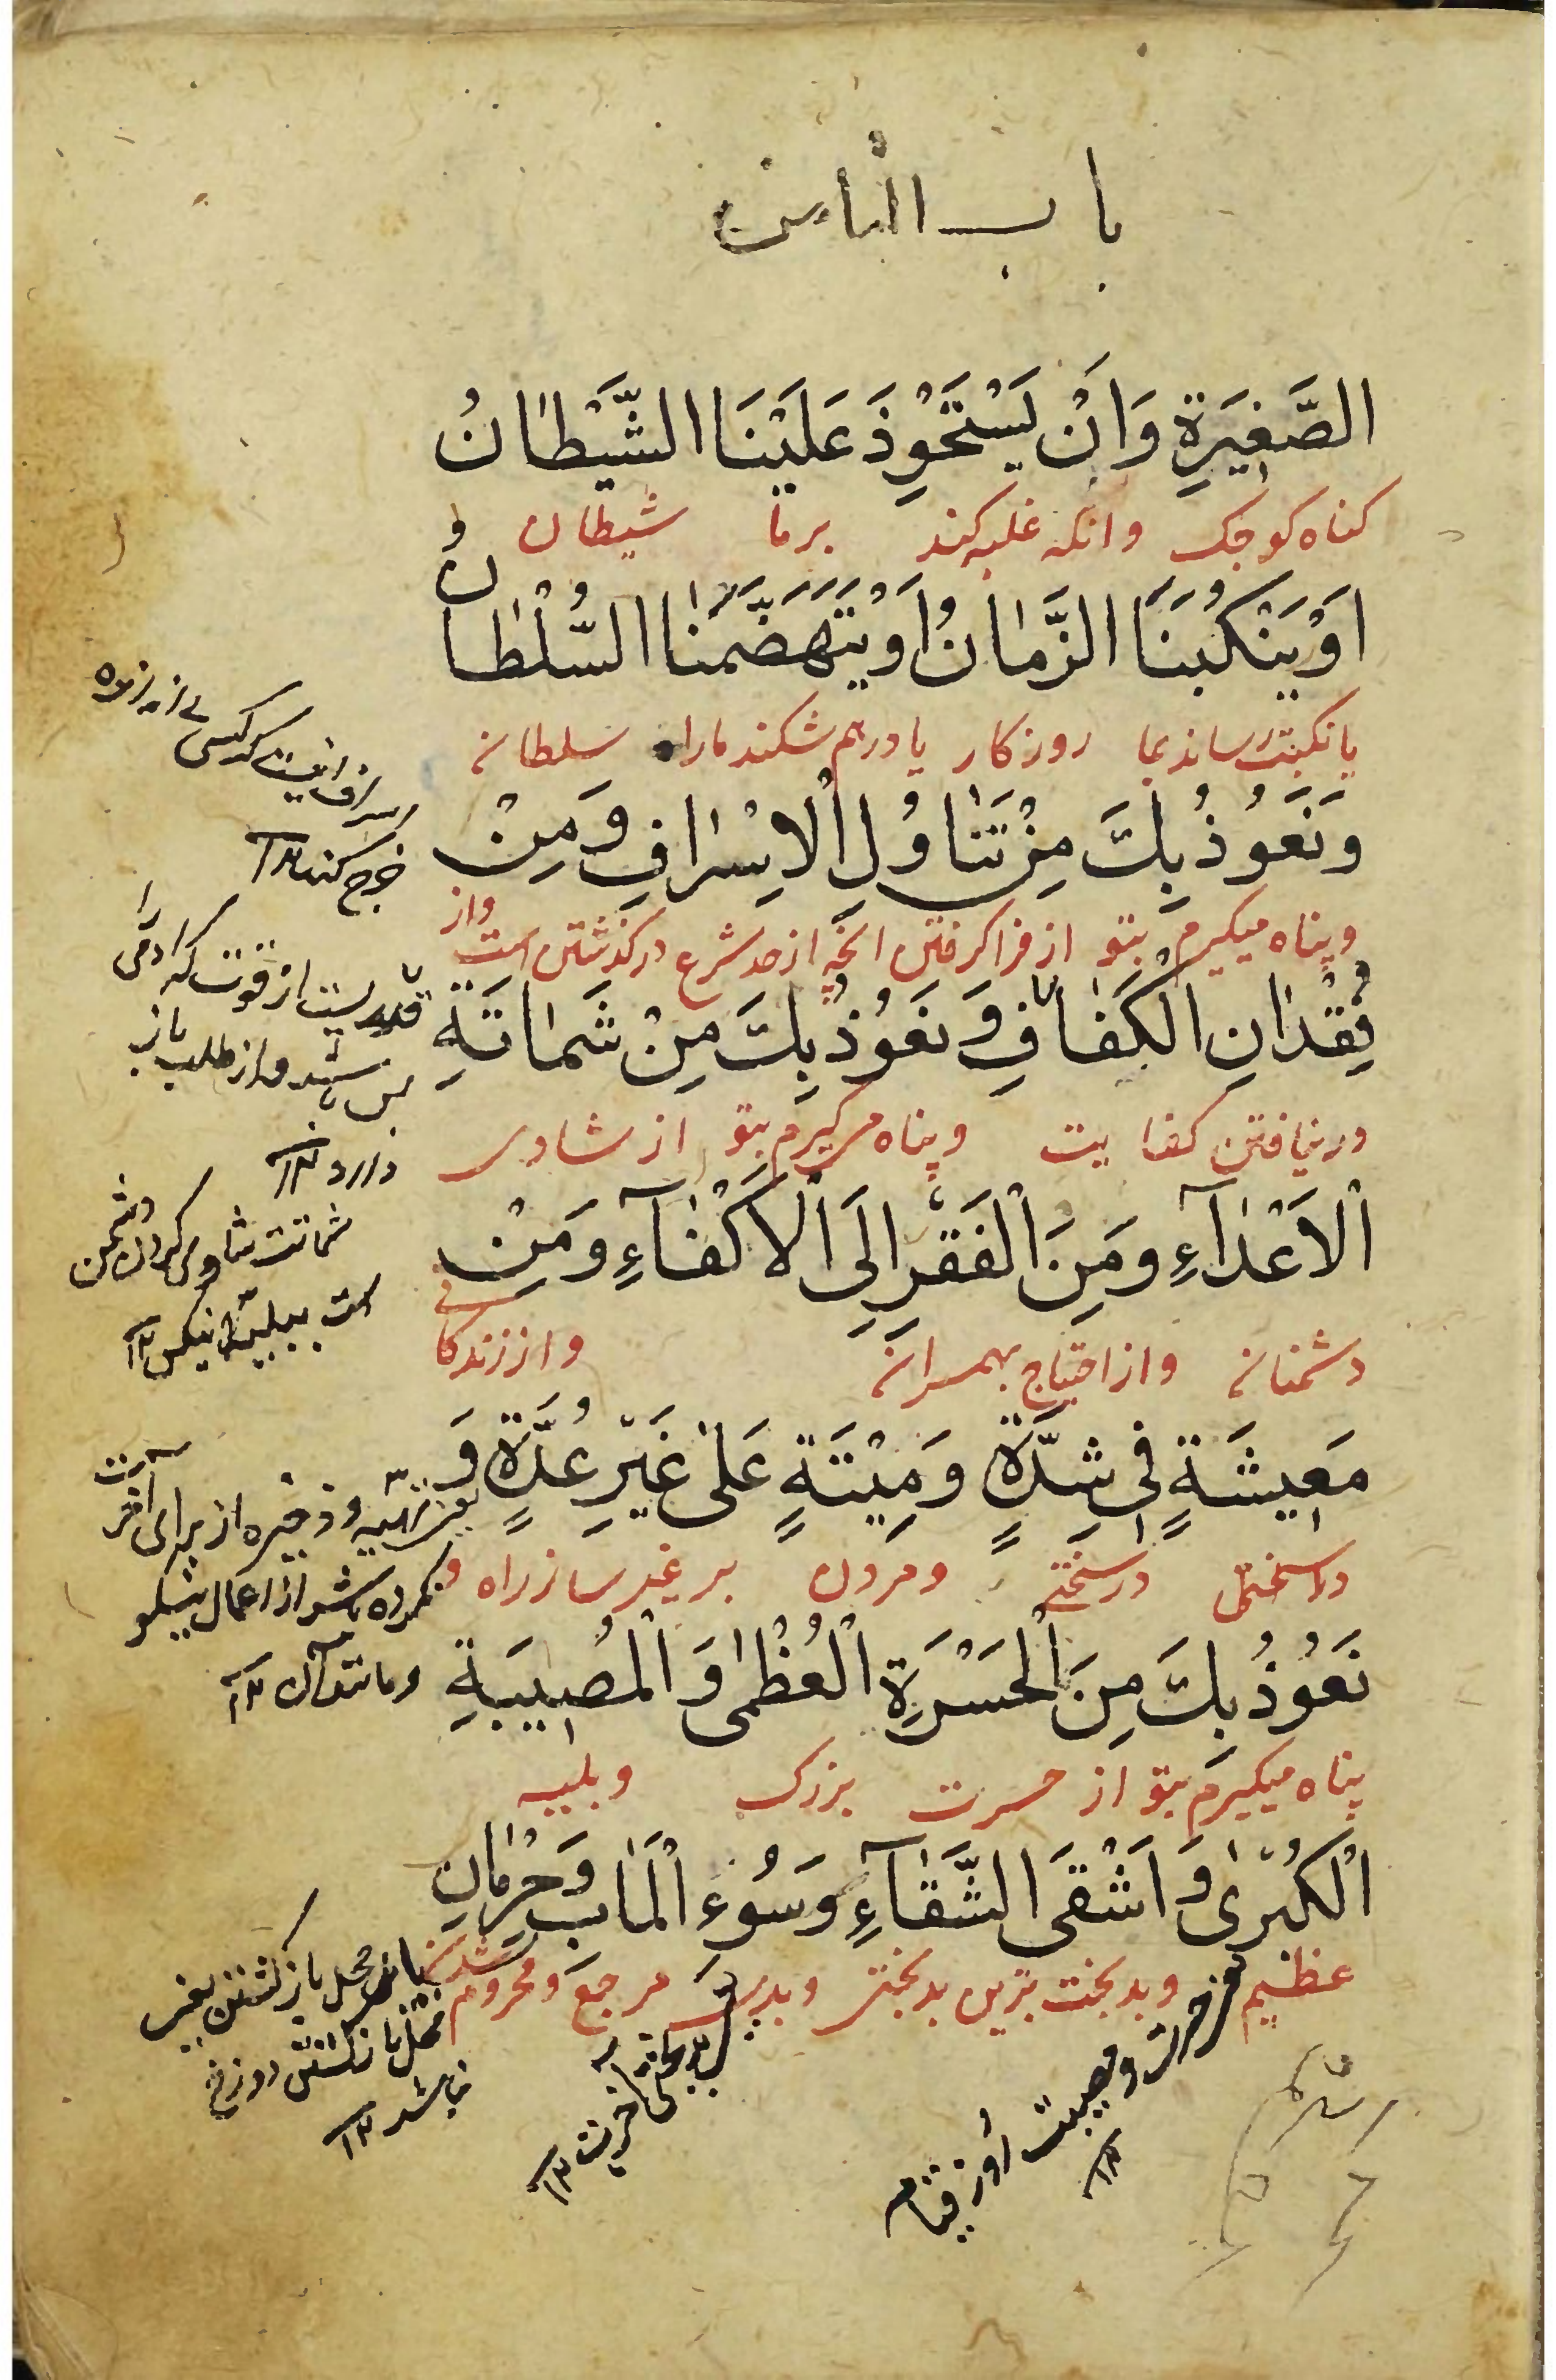 باب الثامن
الصَّغِيرَةِ وَاَنْ يَسْتَحْوِذَ عَلَيْنَا الشَّيْطَانُ
كناه كوچک وانكه غلبه كند برما شيطان
اَوْ يَنْكُبَنَا الزَّمَانُ اَوْ يَتَهَضَّمَنَا السُّلْطَانُ
يا نكبت رساند بما روزكار يا درهم شكند مارا سلطان
وَنَعُوذُ بِكَ مِنْ تَنَاوُلِ الْاِسْرَافِ وَمِنْ
وپناه ميكيرم بتو از فرا كرفتن انچه از حد شرع دركذشتن است واز
فِقْدَانِ الْكَفَافِ وَنَعُوذُ بِكَ مِنْ شَمَاتَةِ
درنيافتن كفايت وپناه ميكيرم بتو از شادى
الْاَعْدَآءِ وَمِنَ الْفَقْرِ اِلَى الْاَكْفَآءِ وَمِنْ
دشمنان واز احتياج بهمسران واز زندكانى
مَعِيشَةٍ فِى شِدَّةٍ وَمِيْتَةٍ عَلَى غَيْرِ عُدَّةٍ وَ
در سختى ومردن بر غير ساز راه و
نَعُوذُ بِكَ مِنَ الْحَسْرَةِ الْعُظْمَى وَالْمُصِيبَةِ
پناه ميكيرم بتو از حسرت بزرک وبليه
الْكُبْرَى وَاَشْقَى الشَّقَآءِ وَسُوءِ الْمَاٰبِ وَحِرْمَانِ
عظيم وبدبخت ترين بدبختى وبدى مرجع ومحروم شدن
خرج كند ١٢
قدريست از قوت كه آدمى را
بس باشد واز طلب باز
دارد ١٢
شماتت شادى كردن دشمن
است ببليه كس ١٢
يعنى تهيه وذخيره از براى آخرت
نكرده باشد از اعمال نيكو
ومانند آن ١٢
محل بازكشتن يعنى
محل بازكشتن دوزخ
باشد ١٢
بدبختى آخرت ١٢
حسرت ومصيبت روز قيامت
١٢